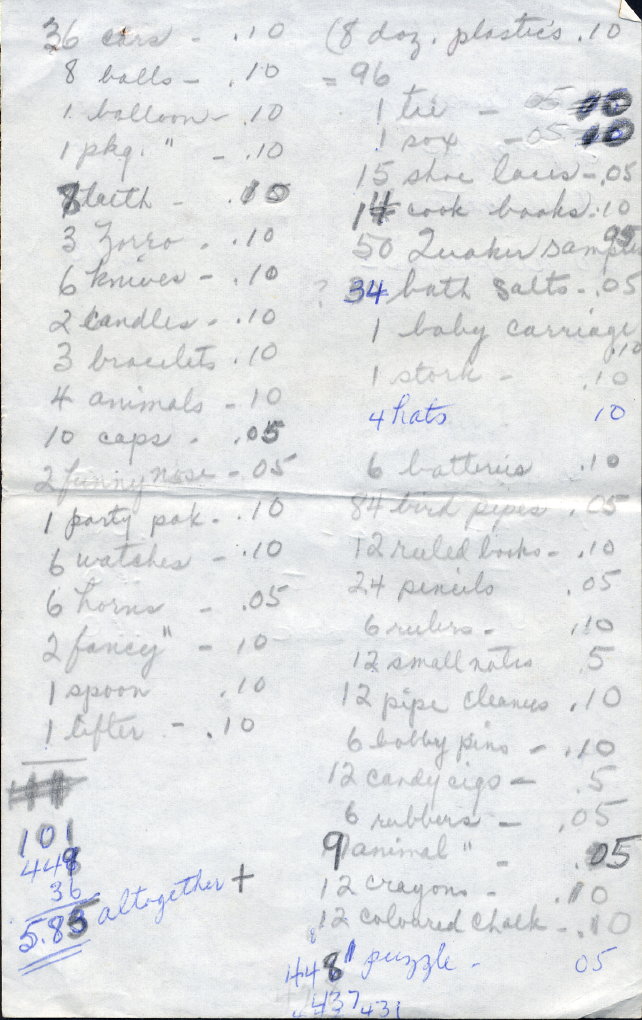 36 cars - .10
8 balls - .10
1 balloon - .10
1 pkg. " - .10
8 teeth - .10
3 Zorro - .10
6 knives - .10
2 candles - .10
3 bracelets .10
4 animals - 10
10 caps - .05
2 funny nose - .05
1 party pak - .10
6 watches - .10
6 horns - .05
2 fancy " - 10
1 spoon .10
1 lifter - .10
101
448
36
5.85 altogether +
(8 doz. plastics .10
= 96
1 tie - 05 10
1 sox - 05 10
15 shoe laces - .05
14 cook books .10
50 Quaker sample
? 34 bath salts - .05
1 baby carriage
.10
1 stork - .10
4 hats 10
6 batteries .10
84 bird pipes .05
12 ruled books - .10
24 pencils .05
6 rulers - .10
12 small notes 5
12 pipe cleaners .10
6 bobby pins - .10
12 candy cigs - .5
6 rubbers - .05
9 animal " - .05
12 crayons - .10
12 coloured chalk - .10
448 puzzle - 05
437 431